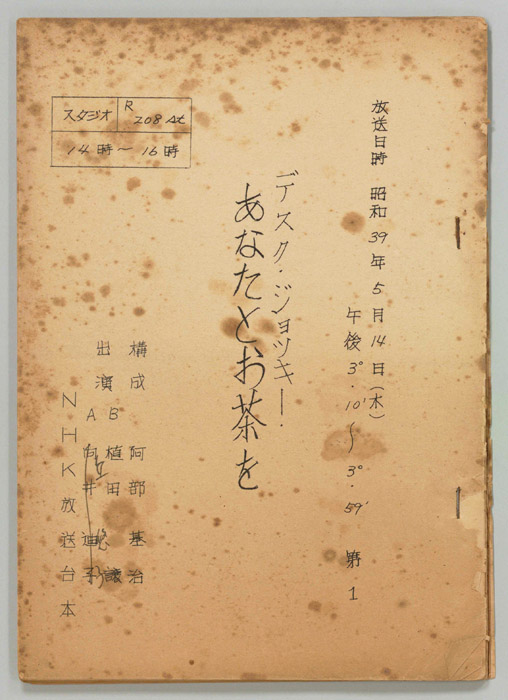 放送日時 昭和39年5月14日(木)
午後3°.10'〜3°.59' 第1
デスク・ジョッキー・
あなたとお茶を
スタジオ R 208 st
14時〜16時
構成 阿部基治
出演 B 植田 譲
A 向井
NHK放送台本